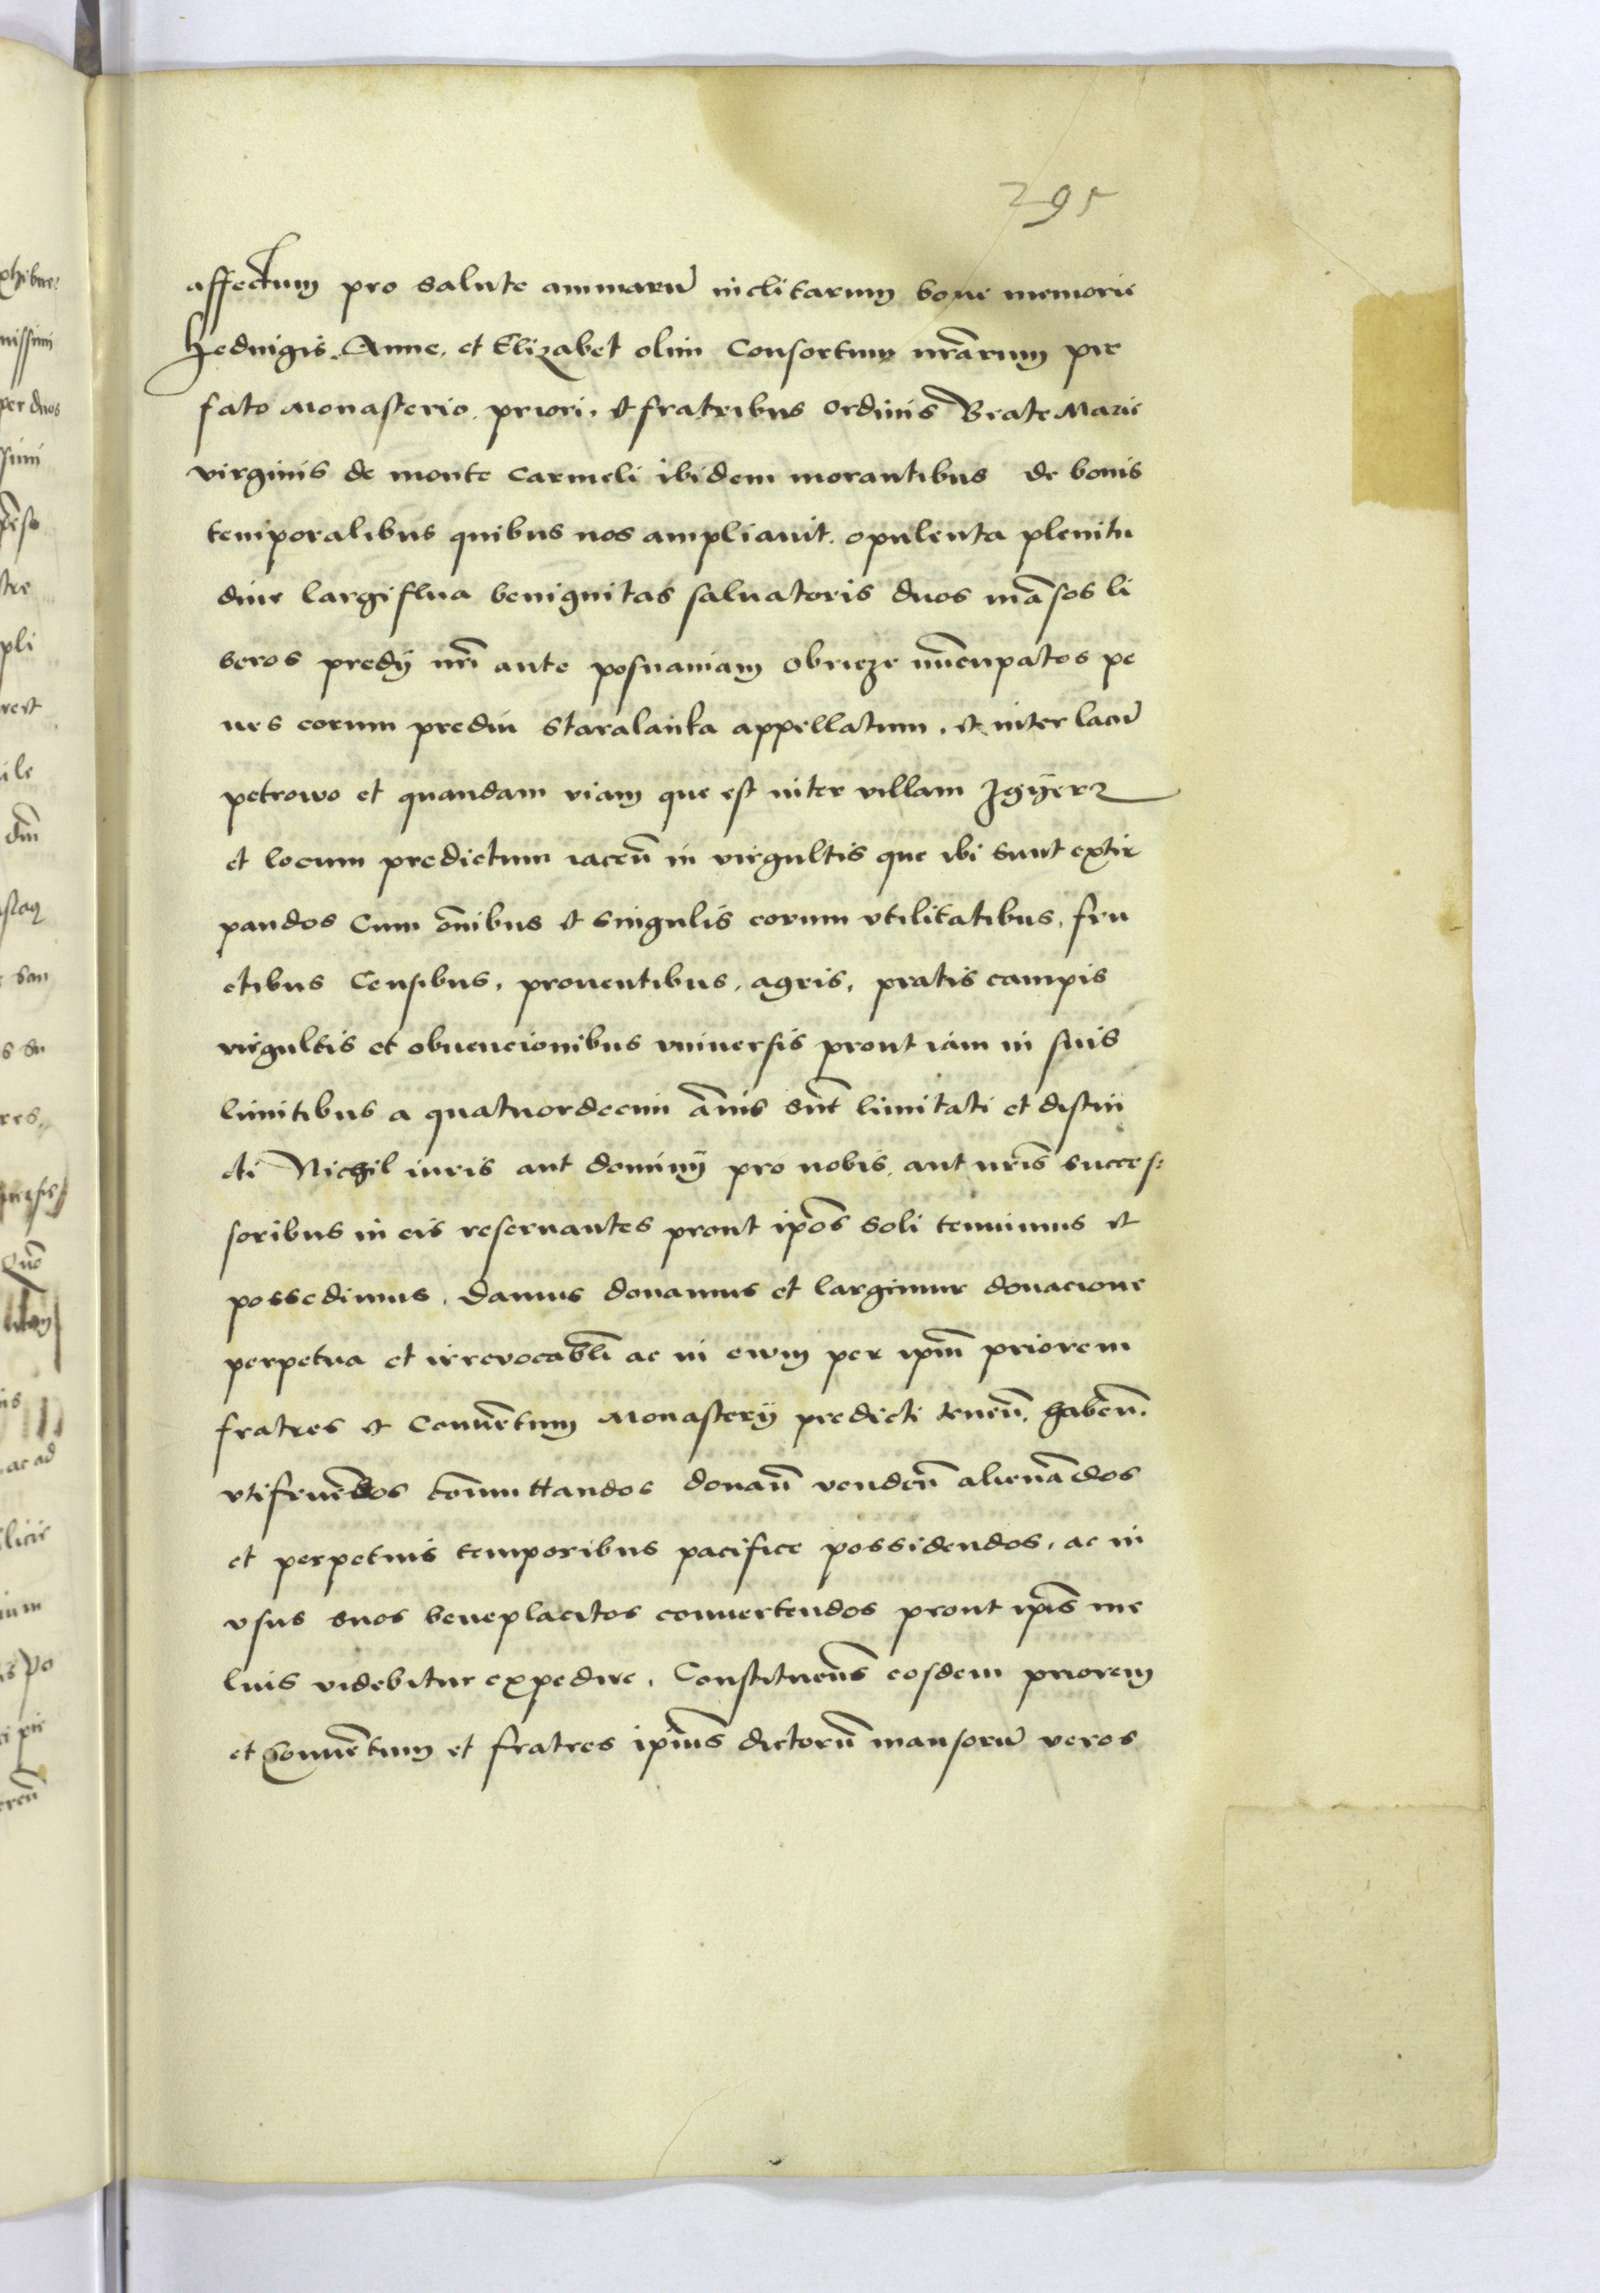 295
affectum pro salute animarū inclitarum bone memorie
Hedwigis. Anne. et Elizabet olim Consortum nr̄arum pre
fato Monasterio. priori. et fratribus ordinis Beate Marie
virginis de monte Carmeli ibidem morantibus de bonis
temporalibus quibus nos ampliauit. opulenta plenitu
dine largiflua benignitas saluatoris duos māsos li
beros predij nr̄i ante posnaniam obrzeze nūcupatos pe
nes eorum prediū staralanka appellatum. et inter lacū
petrowo et quandam viam que est inter villam Zegrze
et locum predictum iaceñ in virgultis que ibi sunt extir
pandos Cum om̄ibus et singulis eorum vtilitatibus, fru
ctibus Censibus, prouentibus, agris, pratis campis
virgultis et obuencionibus vniuersis prout iam in suis
limitibus a quatuordecim āñis sūt limitati et distin
cti Nichil iuris aut dominij pro nobis. aut nr̄is succes:
soribus in eis reseruantes prout ip̄os soli tenuimus et
possedimus. Damus donamus et largimur donacione
perpetua et irreuocabl̄i ac in ewm per ip̄m priorem
fratres et Conuētum Monasterij predicti teneñ. habeñ.
vtifruēdos com̄uttandos donañ vendeñ alienādos
et perpetuis temporibus pacifice possidendos. ac in
vsus suos beneplacitos conuertendos prout ip̄is me
lius videbitur expedire. Constitueñs eosdem priorem
et Conuētum et fratres ip̄ius dictorū mansorū veros